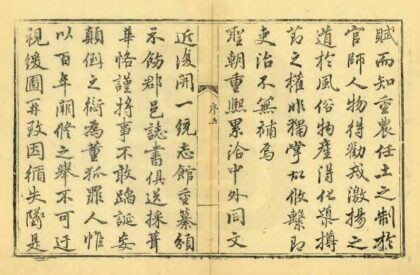 賦而知重農任土之制於
官師人物得勸戒激揚之
道於風俗物產得化導撙
節之權非獨掌故攸繫即
吏治不無補焉
聖朝重熙累洽中外同文
序五
近復開一統志館重纂頒
示飭郡邑誌書俱送採葺
華恪謹將事不敢蹈誕妄
顛倒之術為董狐罪人惟
以百年闕修之舉不可迂
視爰圖再攷因循失墜是